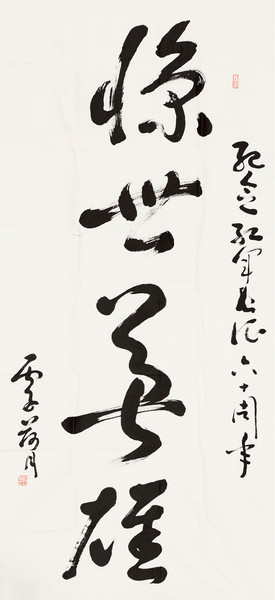 纪念红军长征六十周年
惊世英雄
荷月